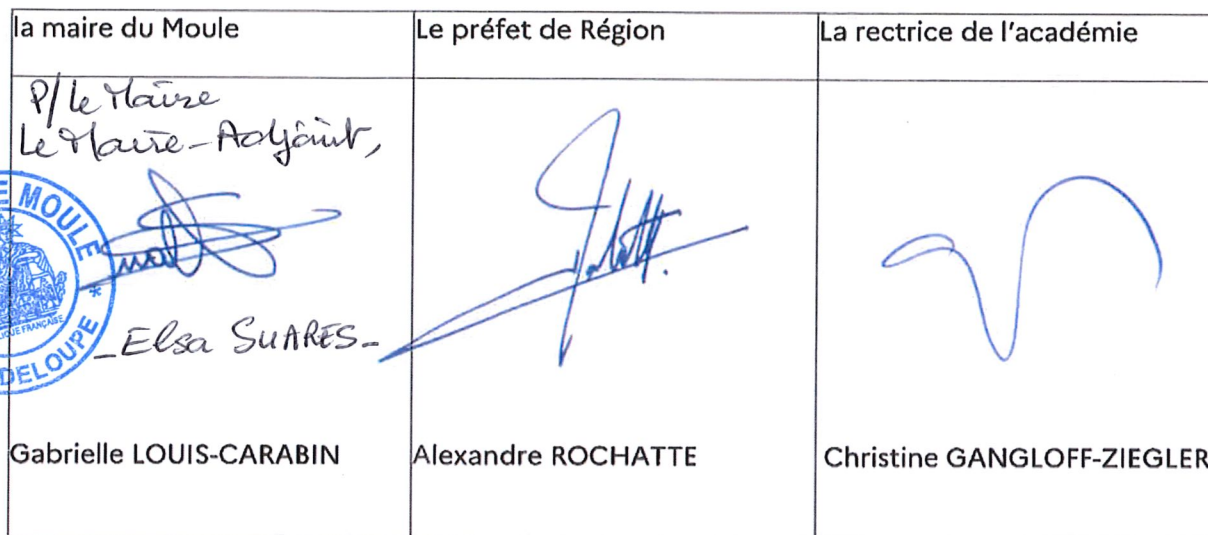 la maire du Moule
Le préfet de Région
La rectrice de l'académie
P/ Le Maire
Le Maire-Adjoint,
MOULE
RÉPUBLIQUE FRANÇAISE
_Elsa SUARES_
Gabrielle LOUIS-CARABIN
Alexandre ROCHATTE
Christine GANGLOFF-ZIEGLER